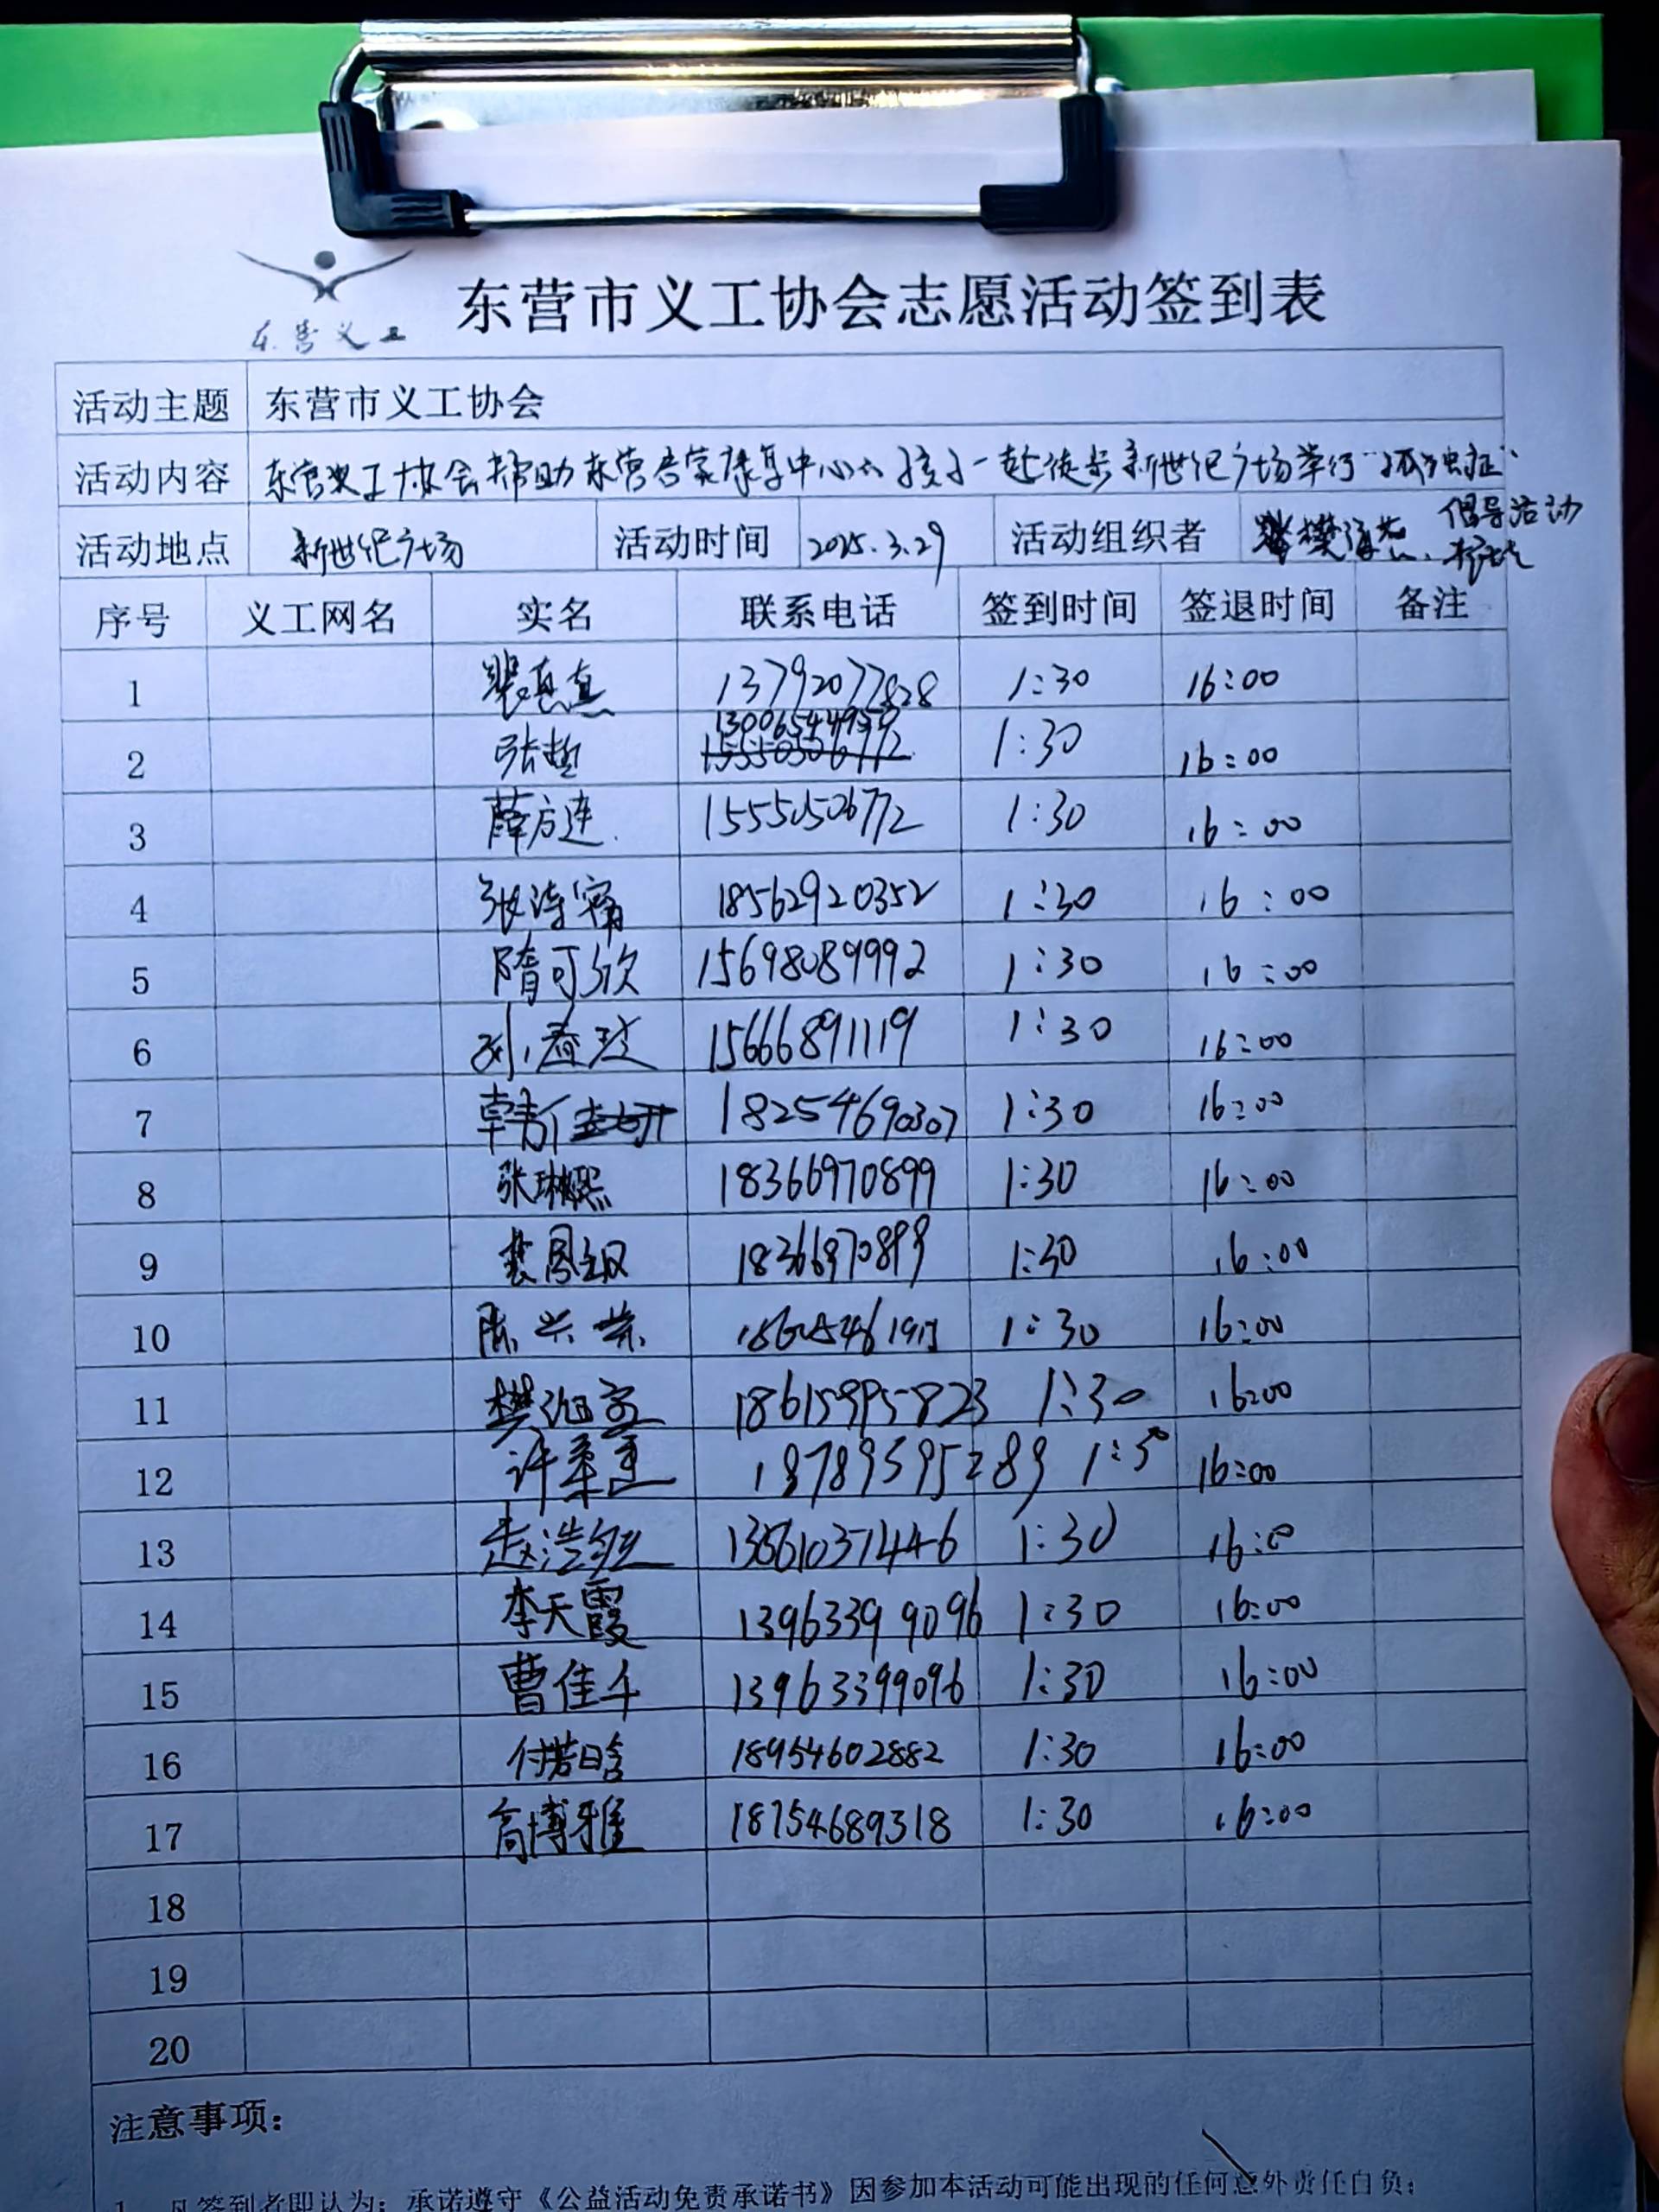 东营义工
东营市义工协会志愿活动签到表
活动主题 东营市义工协会
活动内容 东营义工协会帮助东营吾家康复中心的孩子一起徒步新世纪广场举行"孤独症"
倡导活动
活动地点 新世纪广场 活动时间 2025.3.29 活动组织者
序号 义工网名 实名 联系电话 签到时间 签退时间 备注
1 裴真真 13792077828 1:30 16:00
2 张哲 13006544959 1:30 16:00
3 薛方连 15550506772 1:30 16:00
4 张诗 18562920352 1:30 16:00
5 隋可欣 15698089992 1:30 16:00
6 孙春玫 15666891119 1:30 16:00
7 韩 18254690307 1:30 16:00
8 张琳熙 18366970899 1:30 16:00
9 裴 18366970899 1:30 16:00
10 陈兴荣 1:30 16:00
11 樊 18615995823 1:30 16:00
12 许 1:30 16:00
13 赵浩然 1:30 16:00
14 李天霞 13963399096 1:30 16:00
15 曹佳千 13963399096 1:30 16:00
16 付若晗 18954602882 1:30 16:00
17 高博雅 18754689318 1:30 16:00
18
19
20
注意事项:
1、凡签到者即认为:承诺遵守《公益活动免责承诺书》因参加本活动可能出现的任何意外责任自负;